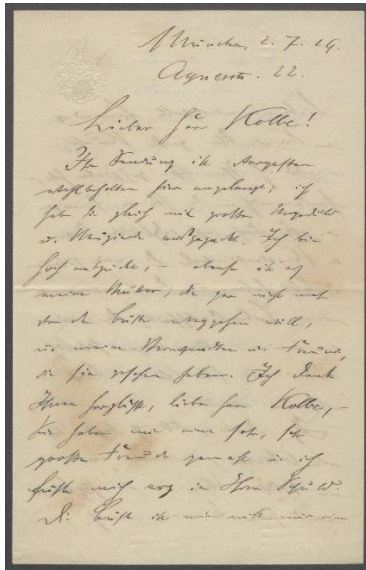 München, 2. 7. 19.
Agnesstr. 22.
Lieber Herr Kolbe!
Ihre Sendung ist vorgestern
wohlbehalten hier angelangt; ich
habe sie gleich mit großer Ungeduld
u. Neugierde ausgepackt. Ich bin
hoch entzückt, – ebenso ist es
meine Mutter, die gar nicht mehr
von der Büste weggehen will,
u. meine Verwandten u. Freunde,
die sie gesehen haben. Ich danke
Ihnen herzlichst, lieber Herr Kolbe, –
Sie haben mir eine sehr, sehr
große Freude gemacht u. ich
fühle mich arg in Ihrer Schuld.
Die Büste ist mir nicht nur eine